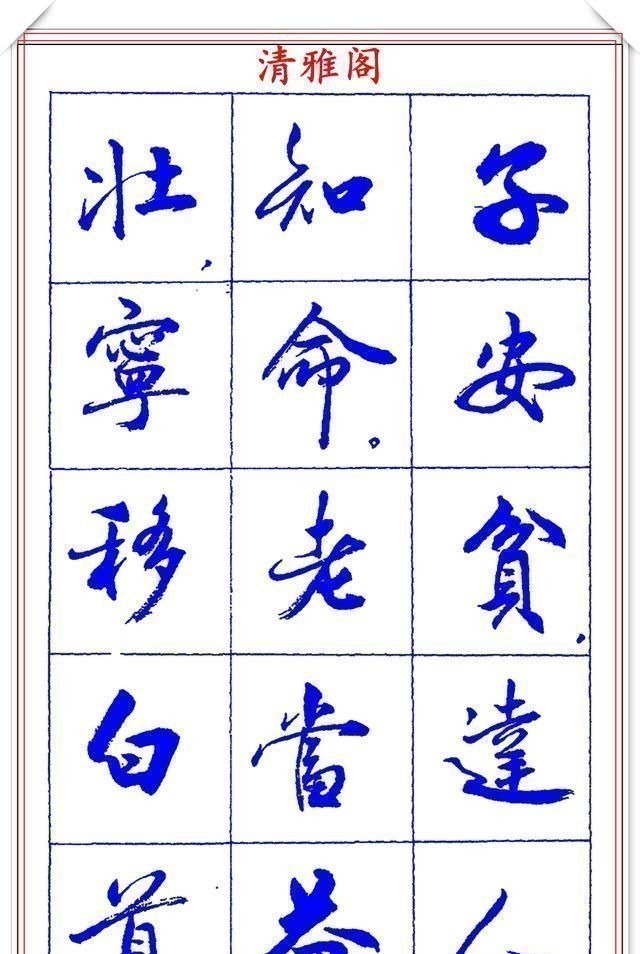 清雅阁
子安貧,達人
知命。老當益
壯,寧移白首